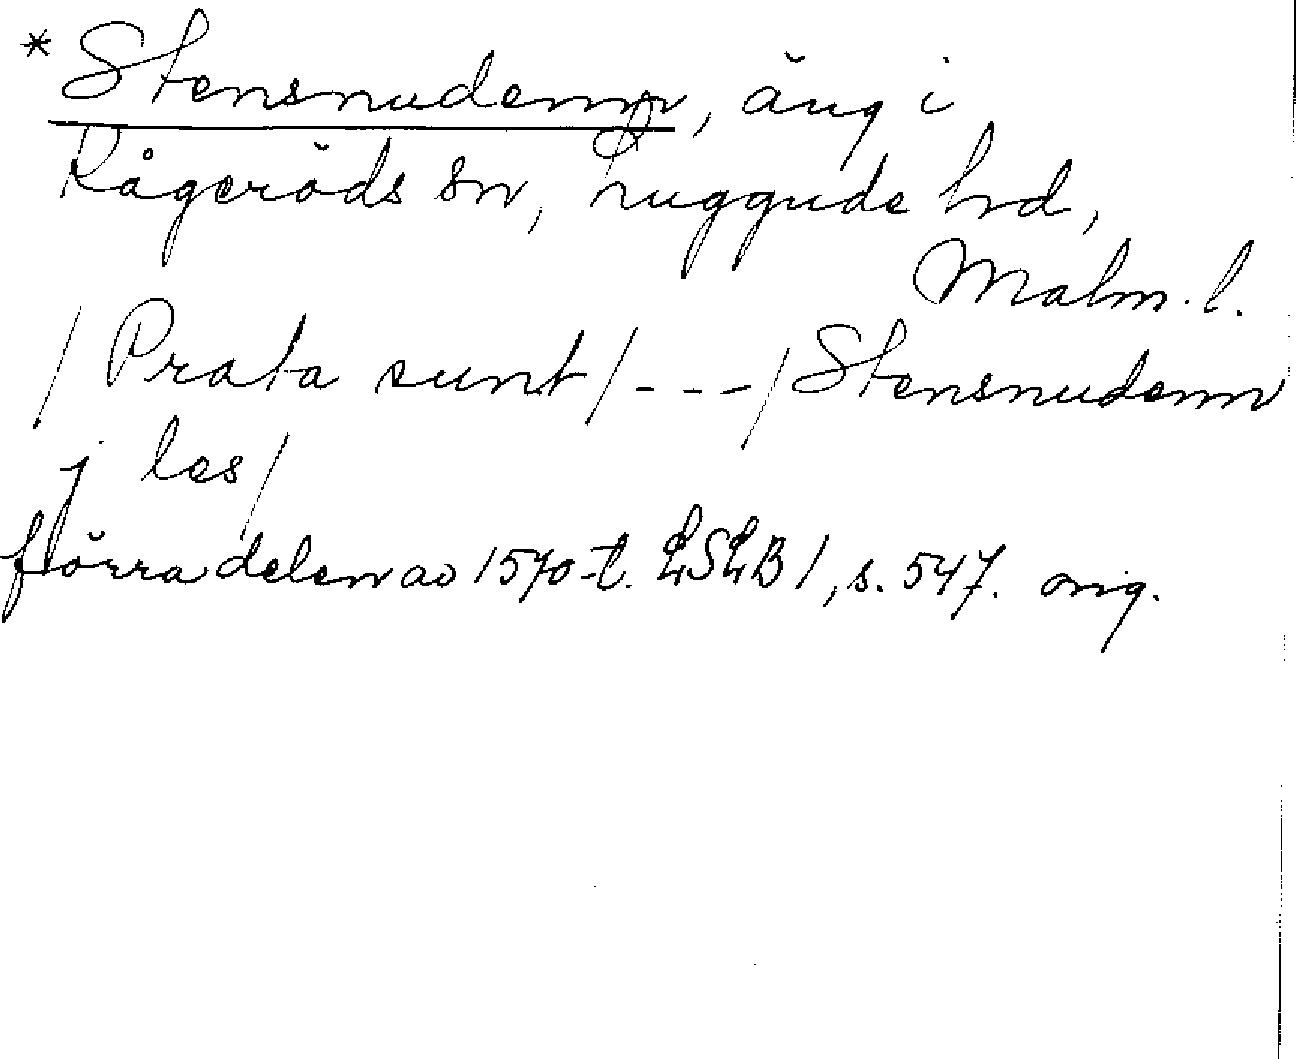 * Stensnudenn, äng i
Kågeröds sn, Luggude hrd,
Malm. l.
/Prata sunt/---/Stensnudenn
j les/
förra delen av 1570-t. LSLB 1, s. 547. orig.